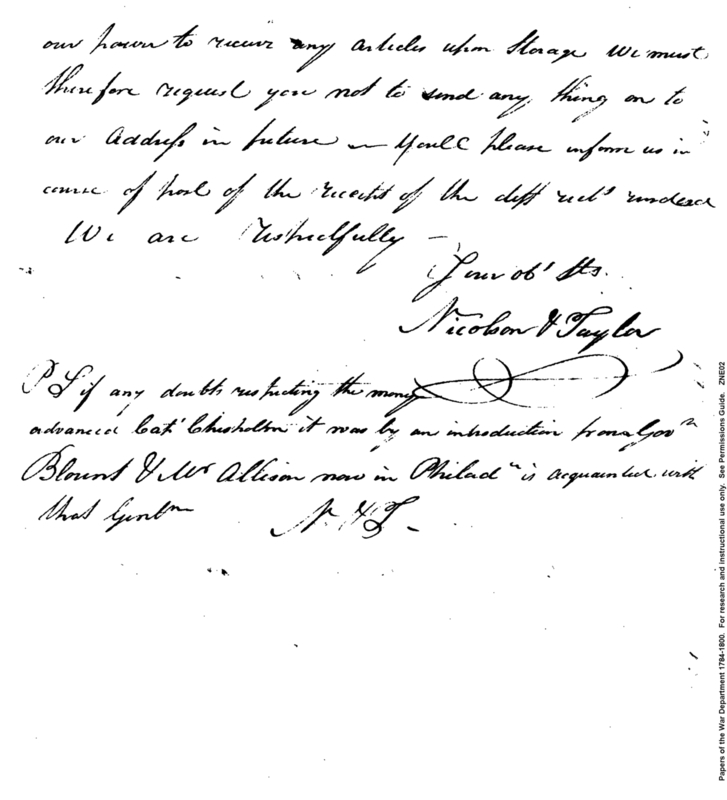 our power to receive any articles upon Storage We must
therefore request you not to send any thing on to
our Address in future — Youll please inform us in
course of post of the receipt of the diff rects
We are respectfully —
Your obt Sts.
Nicolson & Taylor
PS if any doubts respecting the money
advanced Capt Chisholm it was by an introduction from Govr
Blount & Mr Allison now in Philada is acquainted with
that Gentm
N. & T. -
Papers of the War Department 1784-1800. For research and instructional use only. See Permissions Guide. ZNE02